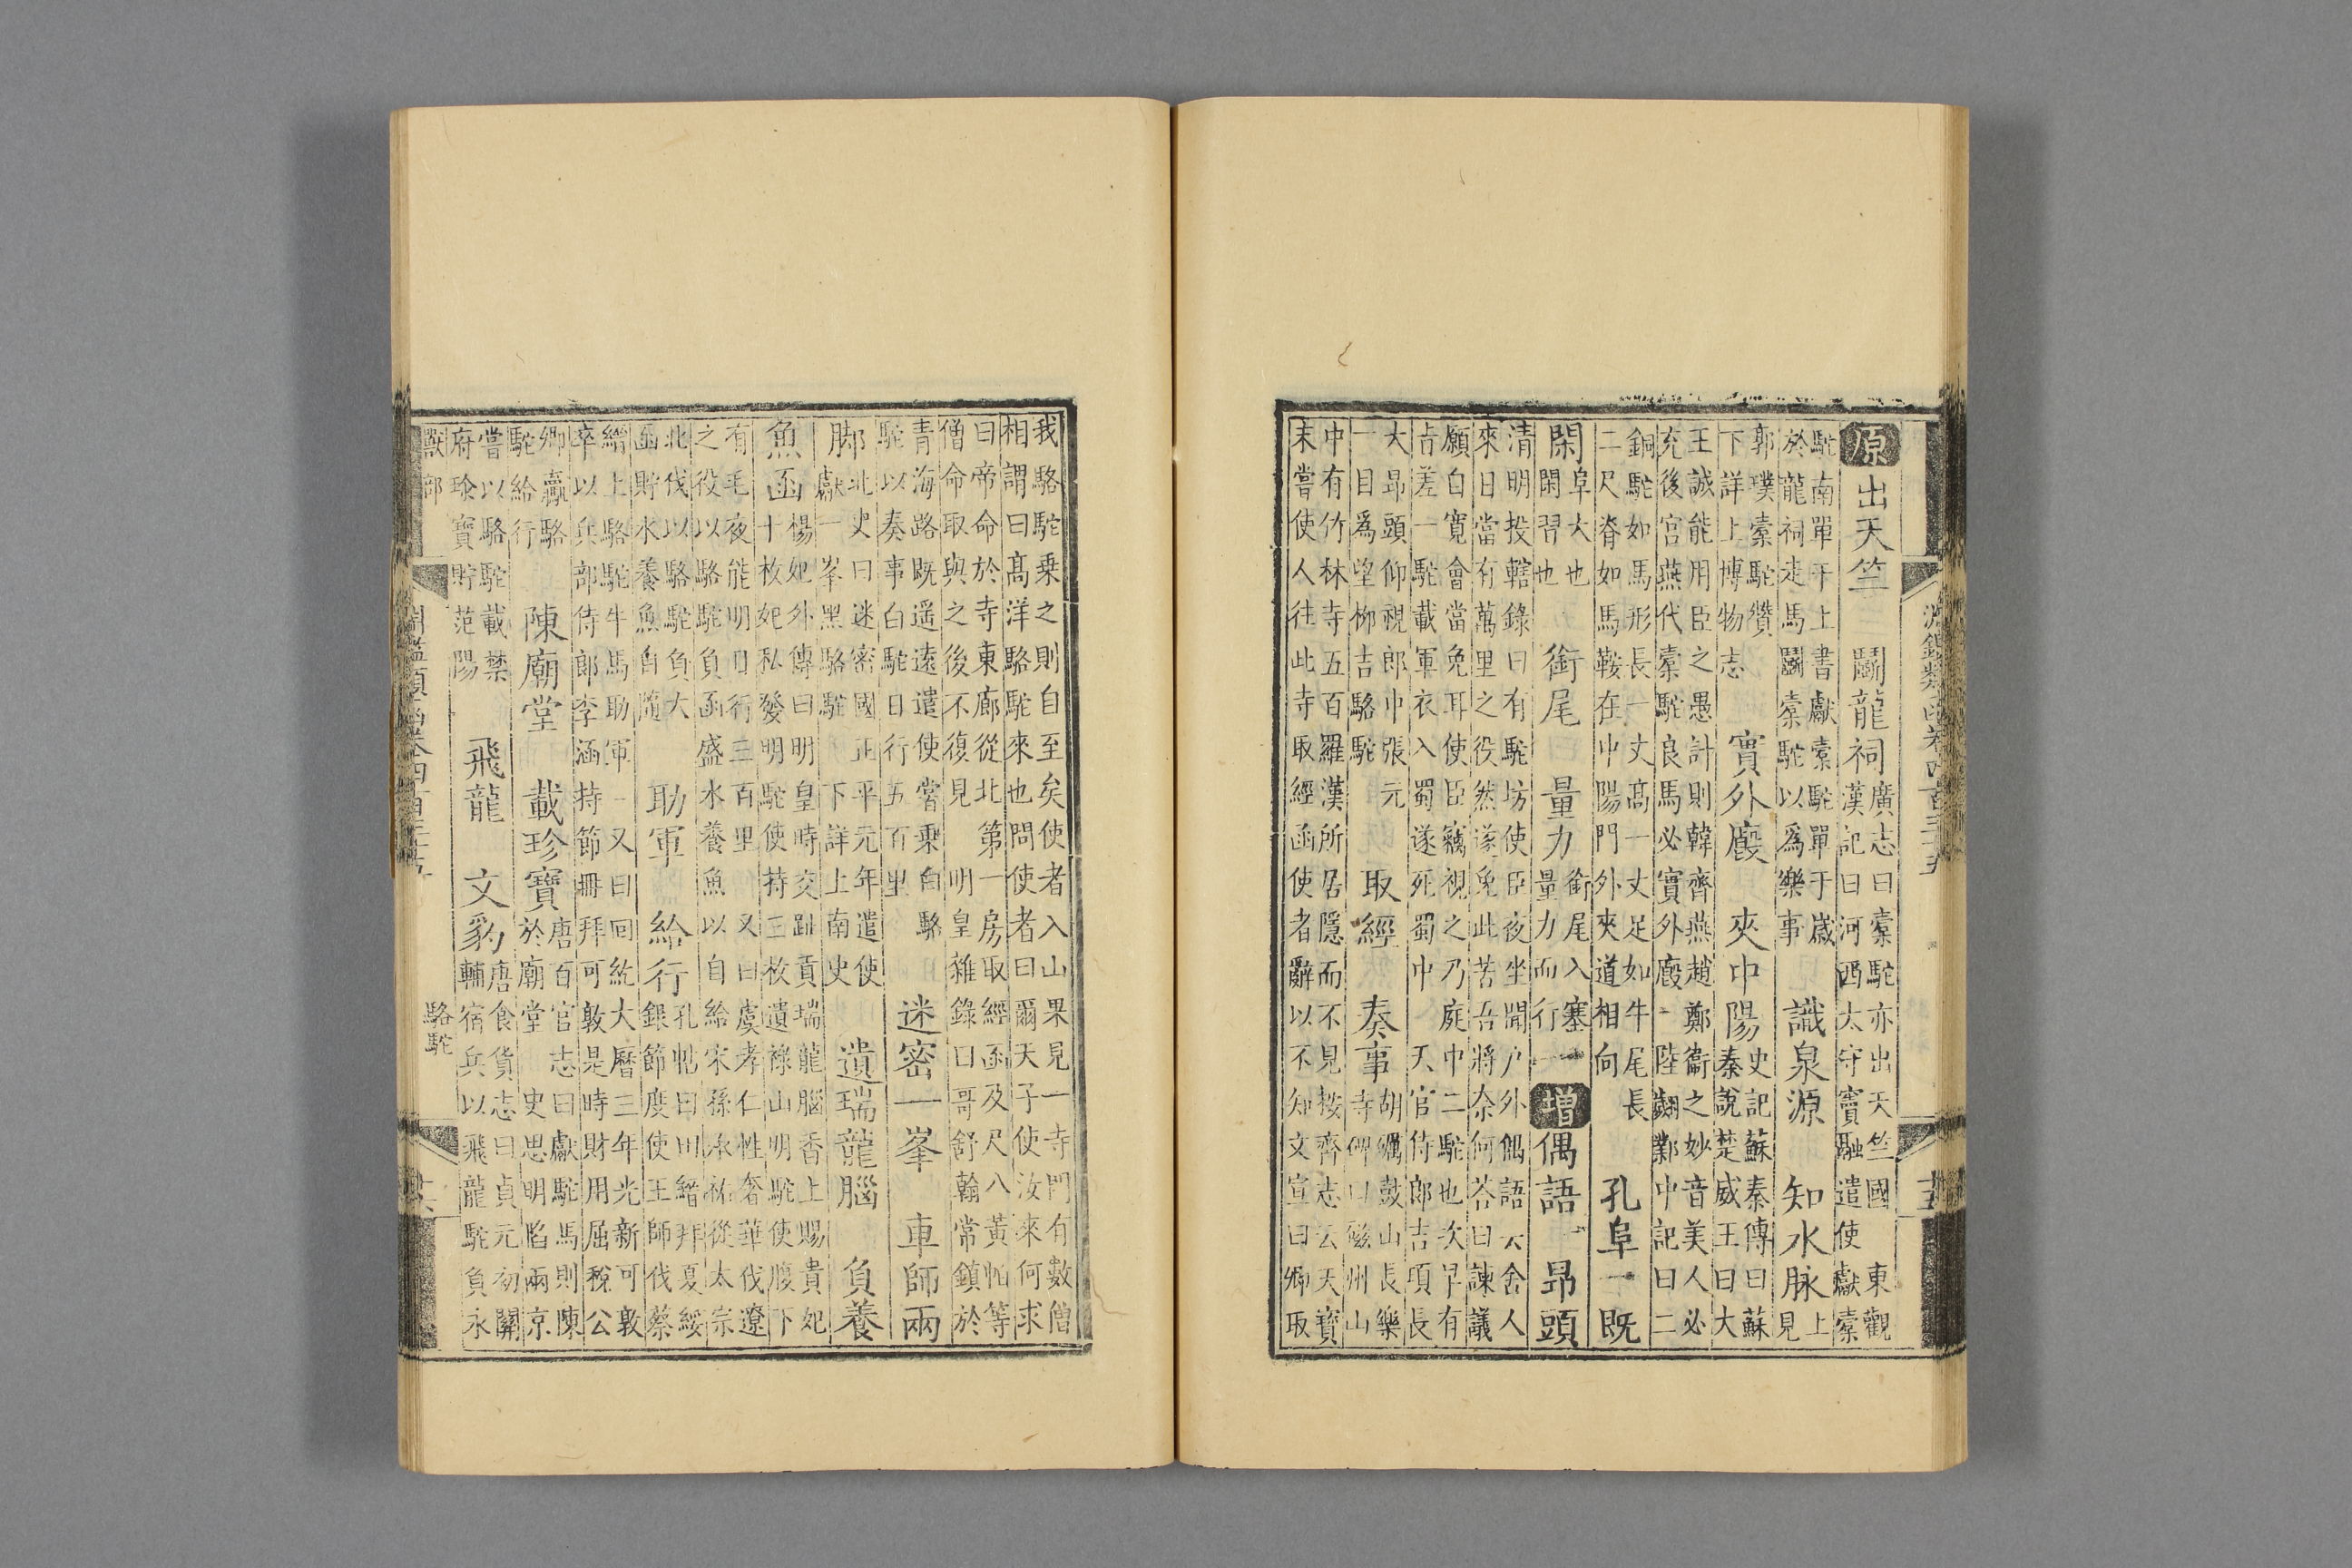 原出天竺 廣志曰橐駝亦出天竺國 鬭龍祠 東觀漢記曰河西太守竇融遣使獻橐
駝南單于上書獻橐駝單于歲於龍祠走馬鬭橐駝以爲樂事 識泉源 知水脉 上見
郭璞橐駝讚下詳上博物志 實外廄 夾中陽 史記蘇秦傳曰蘇秦說楚威王曰大
王誠能用臣之愚計則韓齊燕趙鄭衞之妙音美人必充後宮燕代橐駝良馬必實外廄 陸翽鄴中記曰二
銅駝如馬形長一丈高一丈足如牛尾長二尺脊如馬鞍在中陽門外夾道相向 孔阜 既
閑 阜大也閑習也 銜尾 量力 銜尾入塞量力而行 增偶語 昻頭
清明投轄錄曰有駝坊使臣夜坐聞户外偶語云舍人來日當有萬里之役然遂免此苦吾將奈何荅曰諫議
願白寬會當免耳使臣竊視之乃庭中二駝也次早有旨差一駝載軍衣入蜀遂死蜀中 天官侍郎吉頊長
大昻頭仰視郎中張元一目爲望柳吉駱駝 取經 奏事 胡礪鼓山長樂寺碑曰磁州山
中有竹林寺五百羅漢所居隱而不見按齊志云天寶末嘗使人往此寺取經函使者辭以不知文宣曰卿取
我駱駝乗之則自至矣使者入山果見一寺門有數僧相謂曰高洋駱駝來也問使者曰爾天子使汝來何求
曰帝命於寺東廊從北第一房取經函及尺八黃帕等僧命取與之後不復見 明皇雜錄曰哥舒翰常鎮於
青海路既遥遠遣使嘗乗白駱駝以奏事白駝日行五百里 迷密一峯 車師兩
脚 北史曰迷密國正平元年遣使獻一峯黑駱駝 下詳上南史 遺瑞龍腦 負養
魚函 楊妃外傳曰明皇時交趾貢瑞龍腦香上賜貴妃十枚妃私發明駝使持三枚遺祿山明駝使腹下
有毛夜能明日行三百里 又曰虞孝仁性奢華伐遼之役以駱駝負函盛水養魚以自給宋孫承祐從太宗
北伐以駱駝負大函貯水養魚自隨 助軍 給行 孔帖曰川繒拜夏綏銀節度使王師伐蔡
繒上駱駝牛馬助軍 又曰回紇大曆三年光新可敦卒以兵部侍郎李涵持節冊拜可敦是時財用屈稅公
卿驘駱駝給行 陳廟堂 載珍寶 唐百官志曰獻駝馬則陳於廟堂 史思明陷兩京
嘗以駱駝載禁府珍寶貯范陽 飛龍 文豹 唐食貨志曰貞元初關輔宿兵以飛龍駝負永
獸部 駱駝